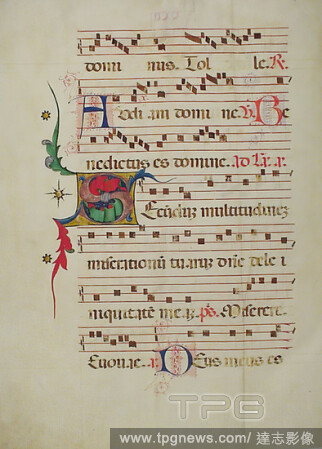 domi mis. Tol le. R.
A Udi am domi ne. V. Be
nedictus es domine. Ad Lx. R.
S Ecundum multitudinez
miserationū tuarum dne dele i
iniquitatē me
Miserere.
Evovae. R. Deus meus es
TPG
www.tpgnews.com/達志影像